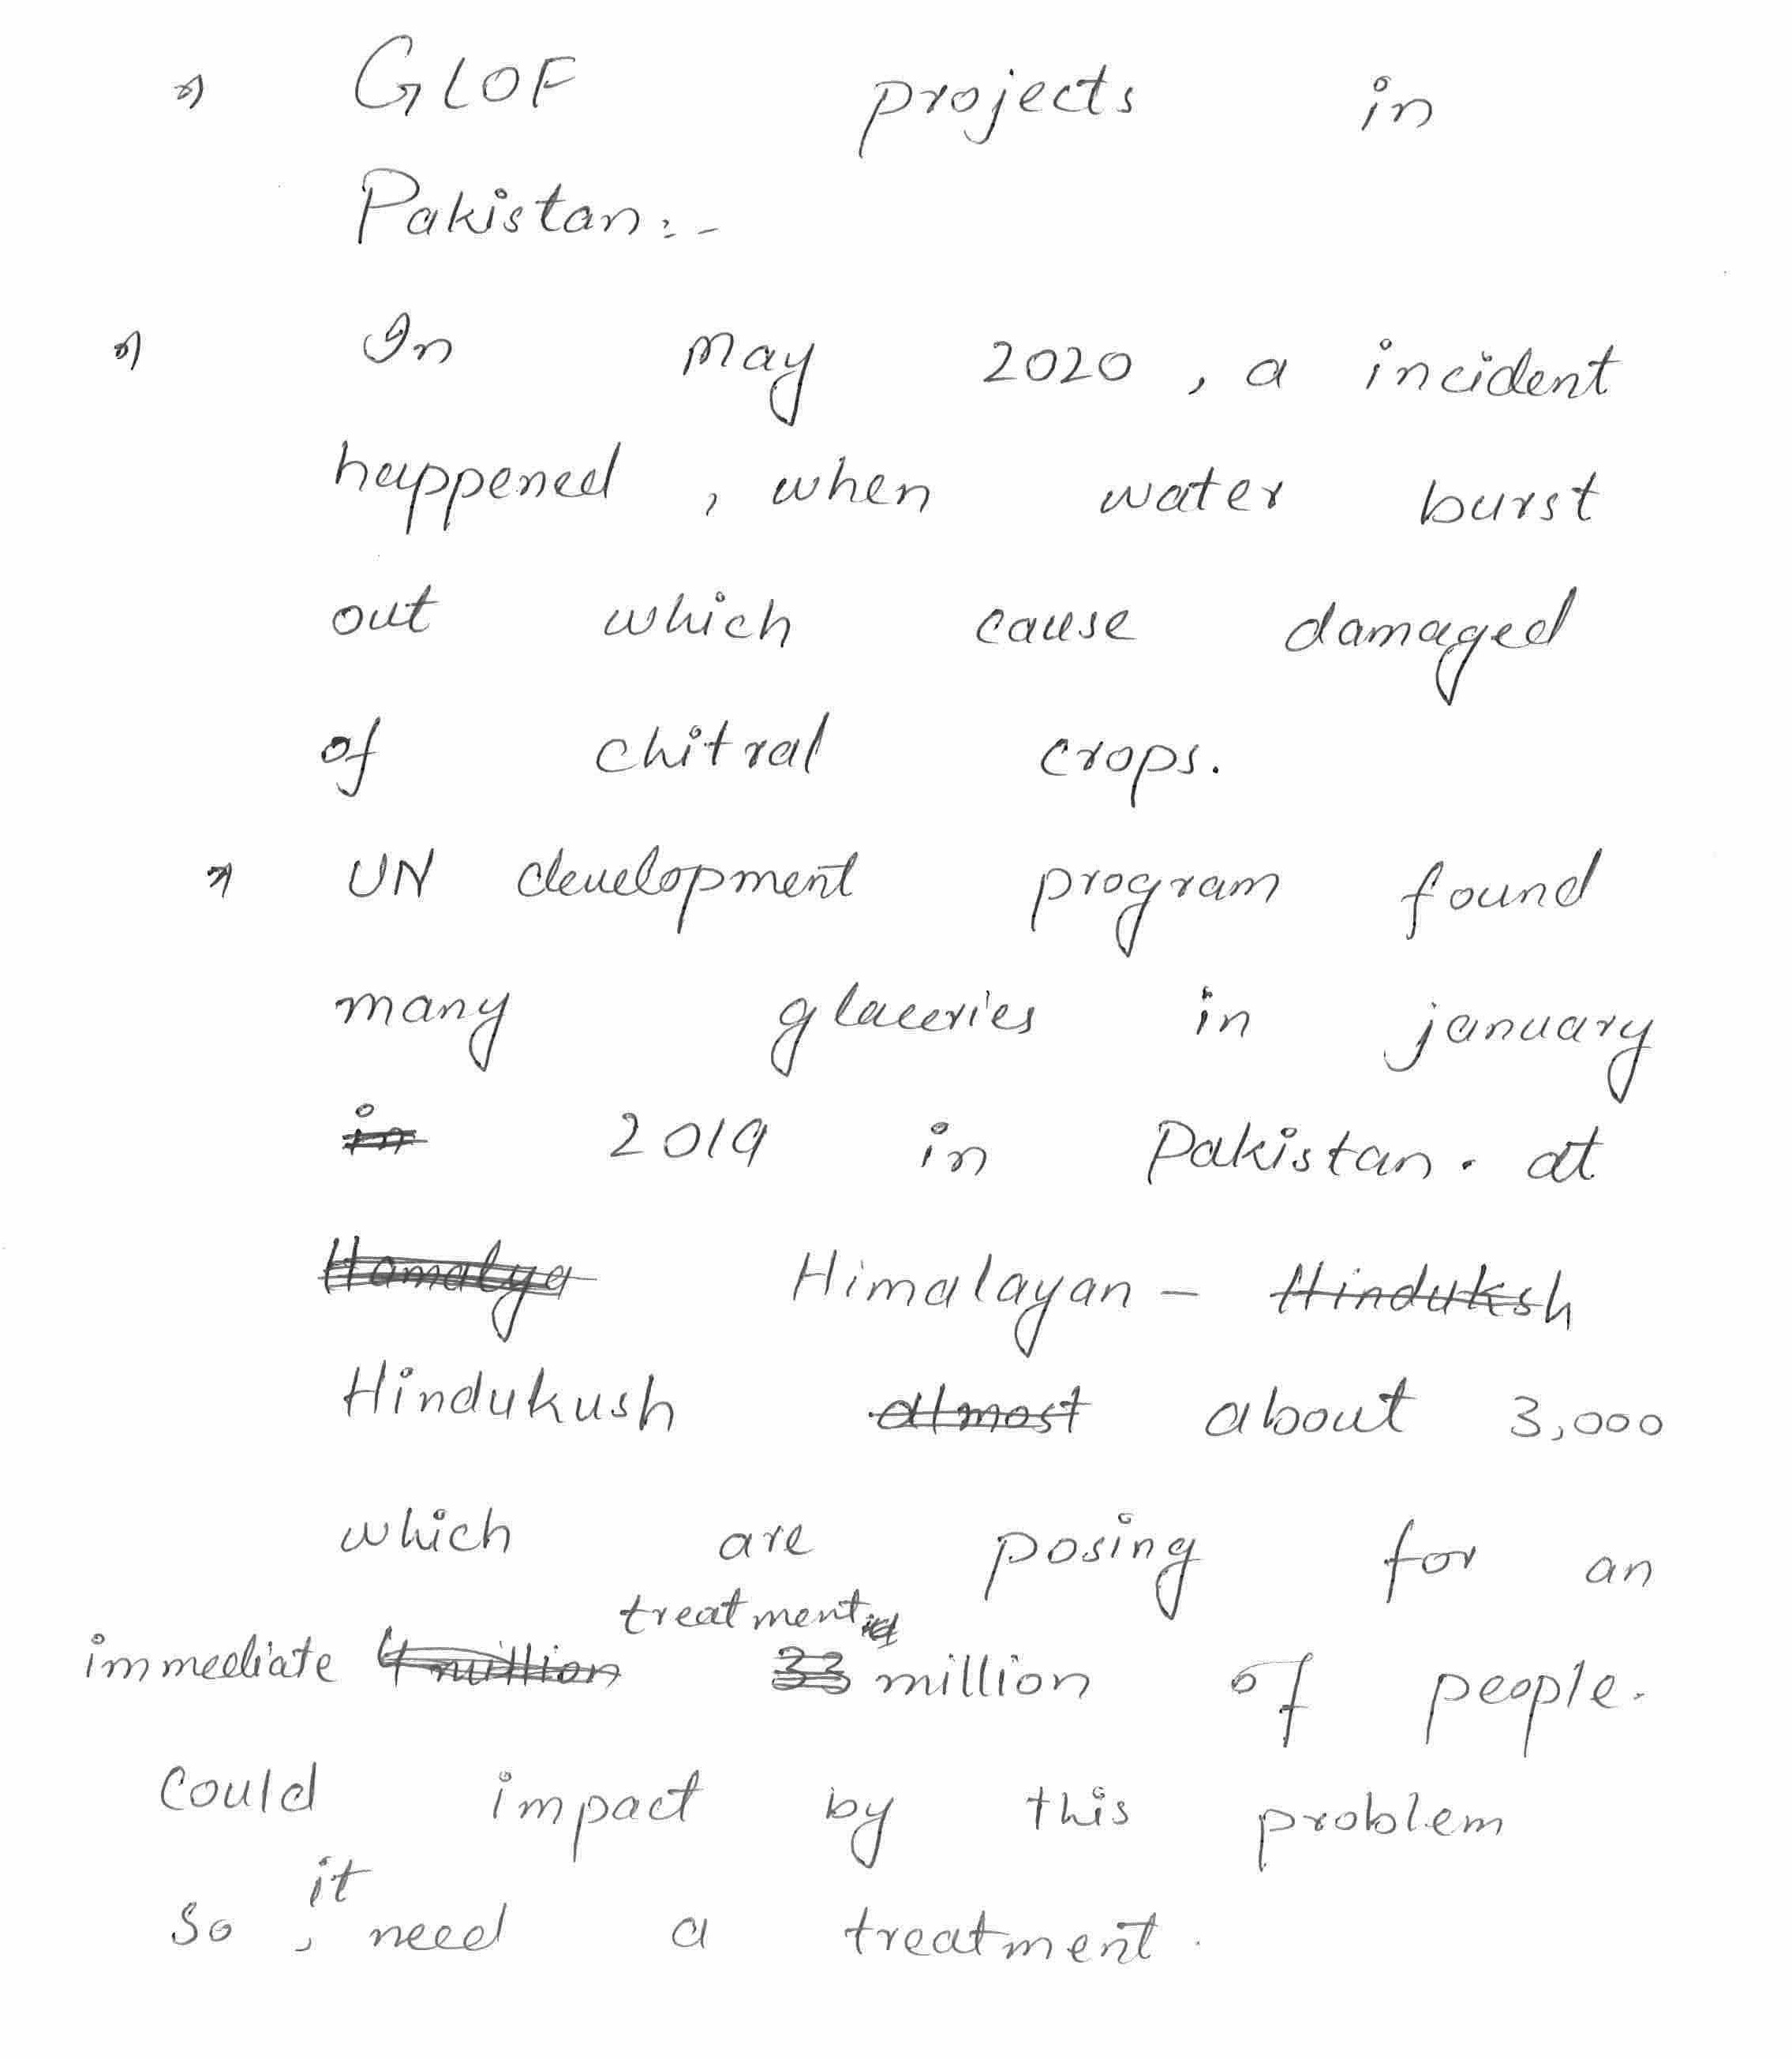 GLOF projects in
Pakistan:-
In May 2020, a incident
happened, when water burst
out which cause damaged
of chitral crops.
UN development program found
many glaceries in january
in 2019 in Pakistan. at
Hamalya Himalayan - Hinduksh
Hindukush almost about 3,000
which are posing for an
treatment
immediate 4 million 33 million of people.
could impact by this problem
it
so, need a treatment.